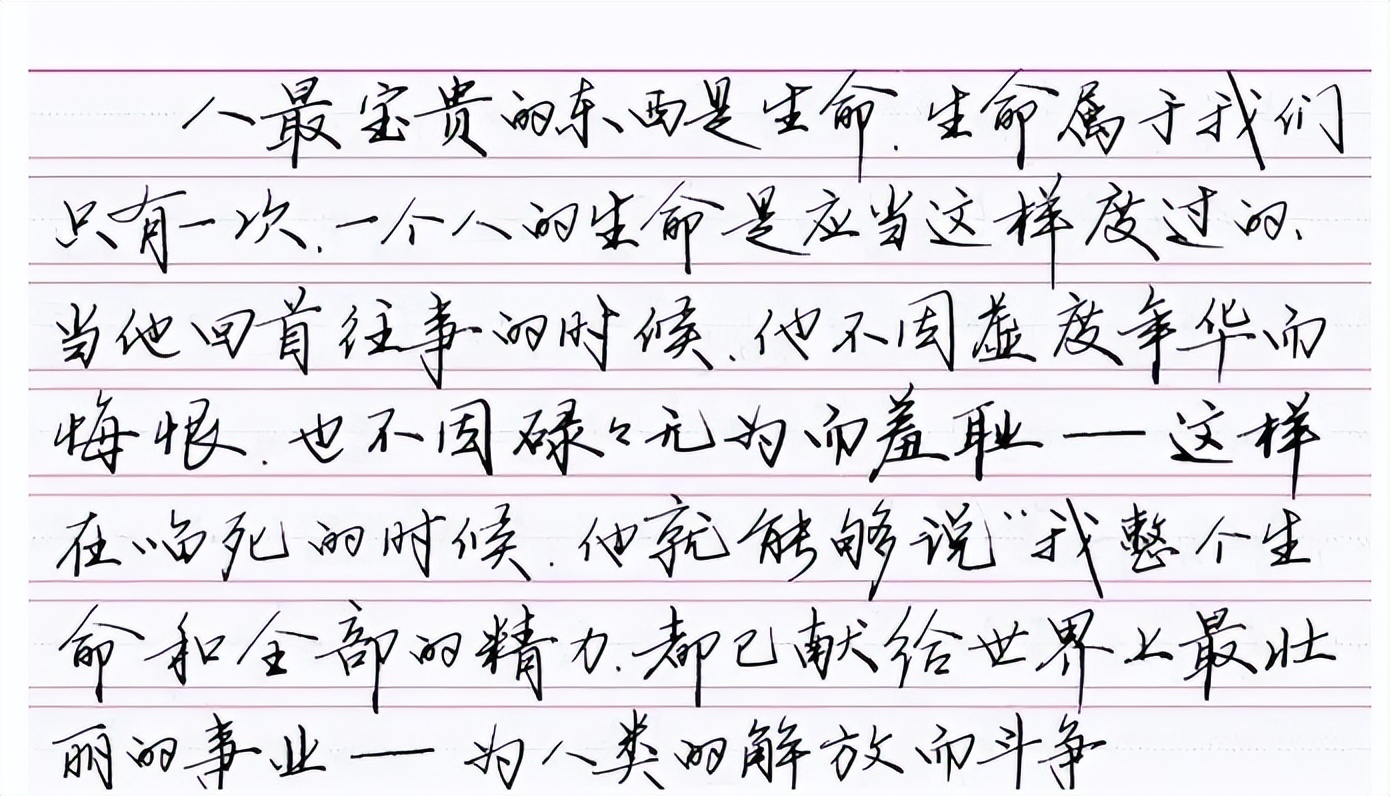 人最宝贵的东西是生命.生命属于我们
只有一次.一个人的生命是应当这样度过的.
当他回首往事的时候.他不因虚度年华而
悔恨.也不因碌々无为而羞耻—这样
在临死的时候.他就能够说"我整个生
命和全部的精力.都已献给世界上最壮
丽的事业—为人类的解放而斗争